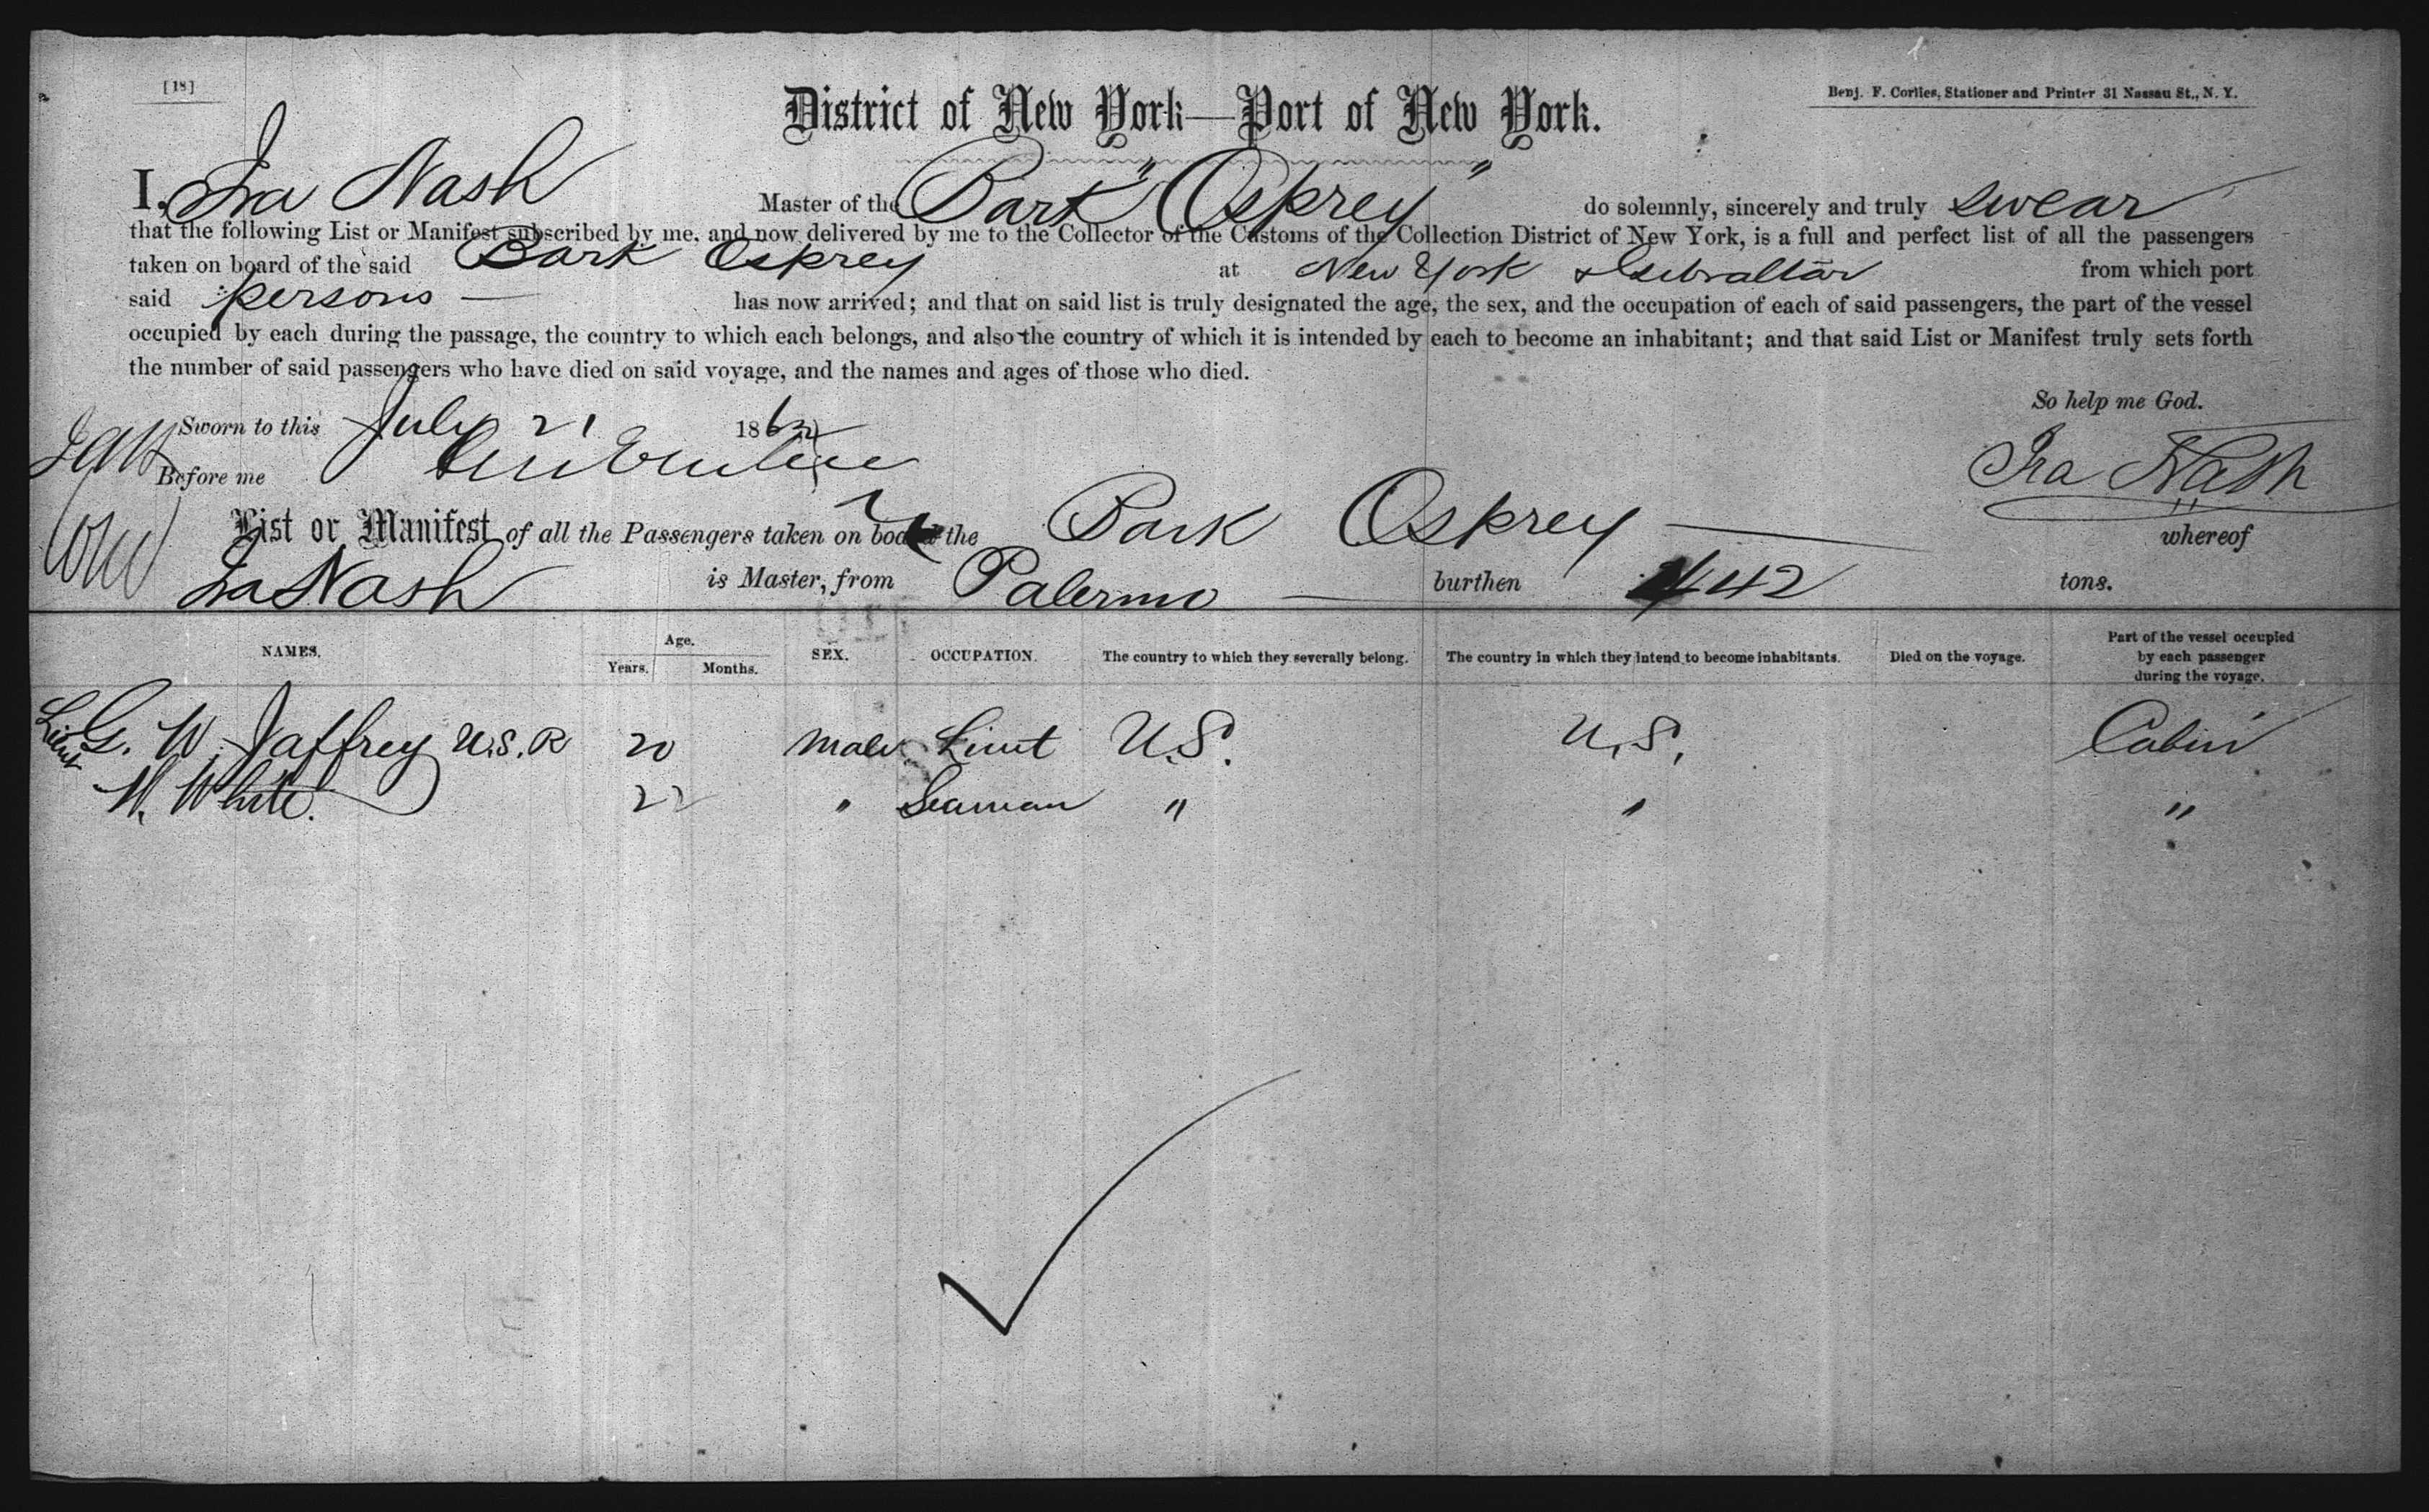 [18]
District of New York—Port of New York.
Benj. F. Corlies, Stationer and Printer 31 Nassau St., N. Y.
I, Ira Nash Master of the Bark "Osprey" do solemnly, sincerely and truly swear
that the following List or Manifest subscribed by me, and now delivered by me to the Collector of the Customs of the Collection District of New York, is a full and perfect list of all the passengers
taken on board of the said Bark Osprey at New York & Gibraltar from which port
said persons — has now arrived; and that on said list is truly designated the age, the sex, and the occupation of each of said passengers, the part of the vessel
occupied by each during the passage, the country to which each belongs, and also the country of which it is intended by each to become an inhabitant; and that said List or Manifest truly sets forth
the number of said passengers who have died on said voyage, and the names and ages of those who died.
So help me God.
Sworn to this July 21 186
Before me
Ira Nash
List or Manifest of all the Passengers taken on board the Bark Osprey — whereof
Ira Nash is Master, from Palermo — burthen 442 tons.
NAMES. Age. Years. Months. SEX. OCCUPATION. The country to which they severally belong. The country in which they intend to become inhabitants. Died on the voyage. Part of the vessel occupied by each passenger during the voyage.
Lieut G. W. Jaffrey U.S.R 20 Male Lieut U.S. U.S. Cabin
W. White. 22 " Seaman " " "